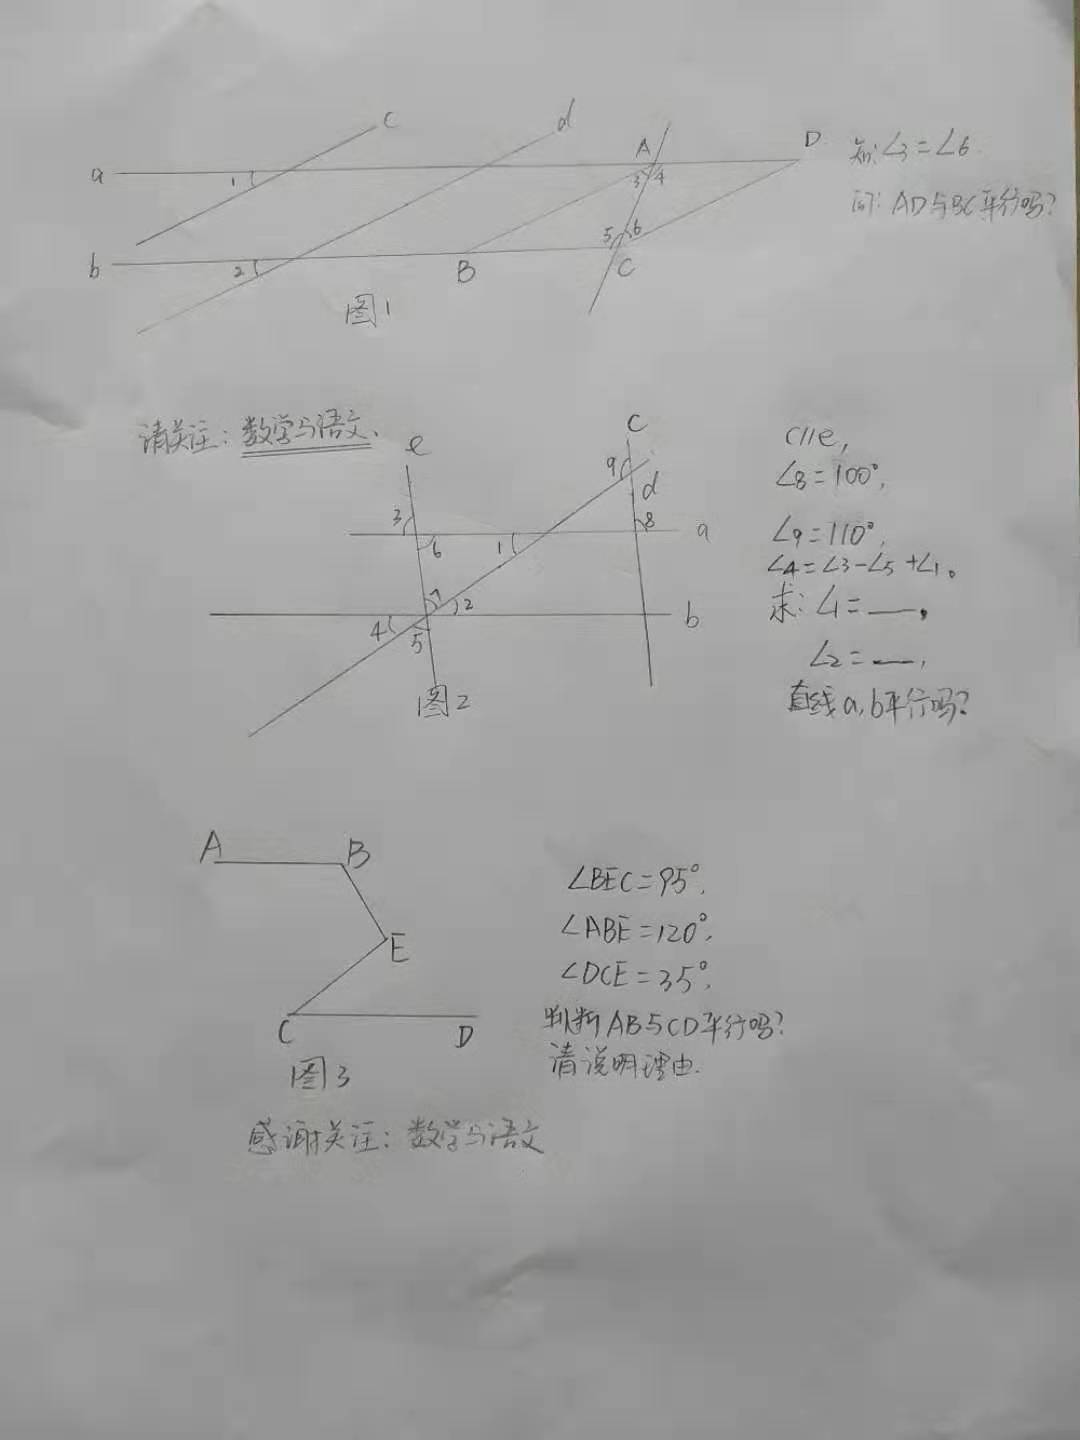 c
d
A
D
a
1
3 4
知:∠3=∠6.
问:AD与BC平行吗?
b
2
B
5 6
C
图1
请关注:数学与语文.
e
c
9
d
3
8
a
6
1
7
2
b
4
5
图2
c//e,
∠8=100°,
∠9=110°,
∠4=∠3-∠5+∠1。
求:∠1=__,
∠2=__,
直线a,b平行吗?
A
B
E
C
D
图3
∠BEC=95°.
∠ABE=120°.
∠DCE=35°.
判断AB与CD平行吗?
请说明理由.
感谢关注:数学与语文